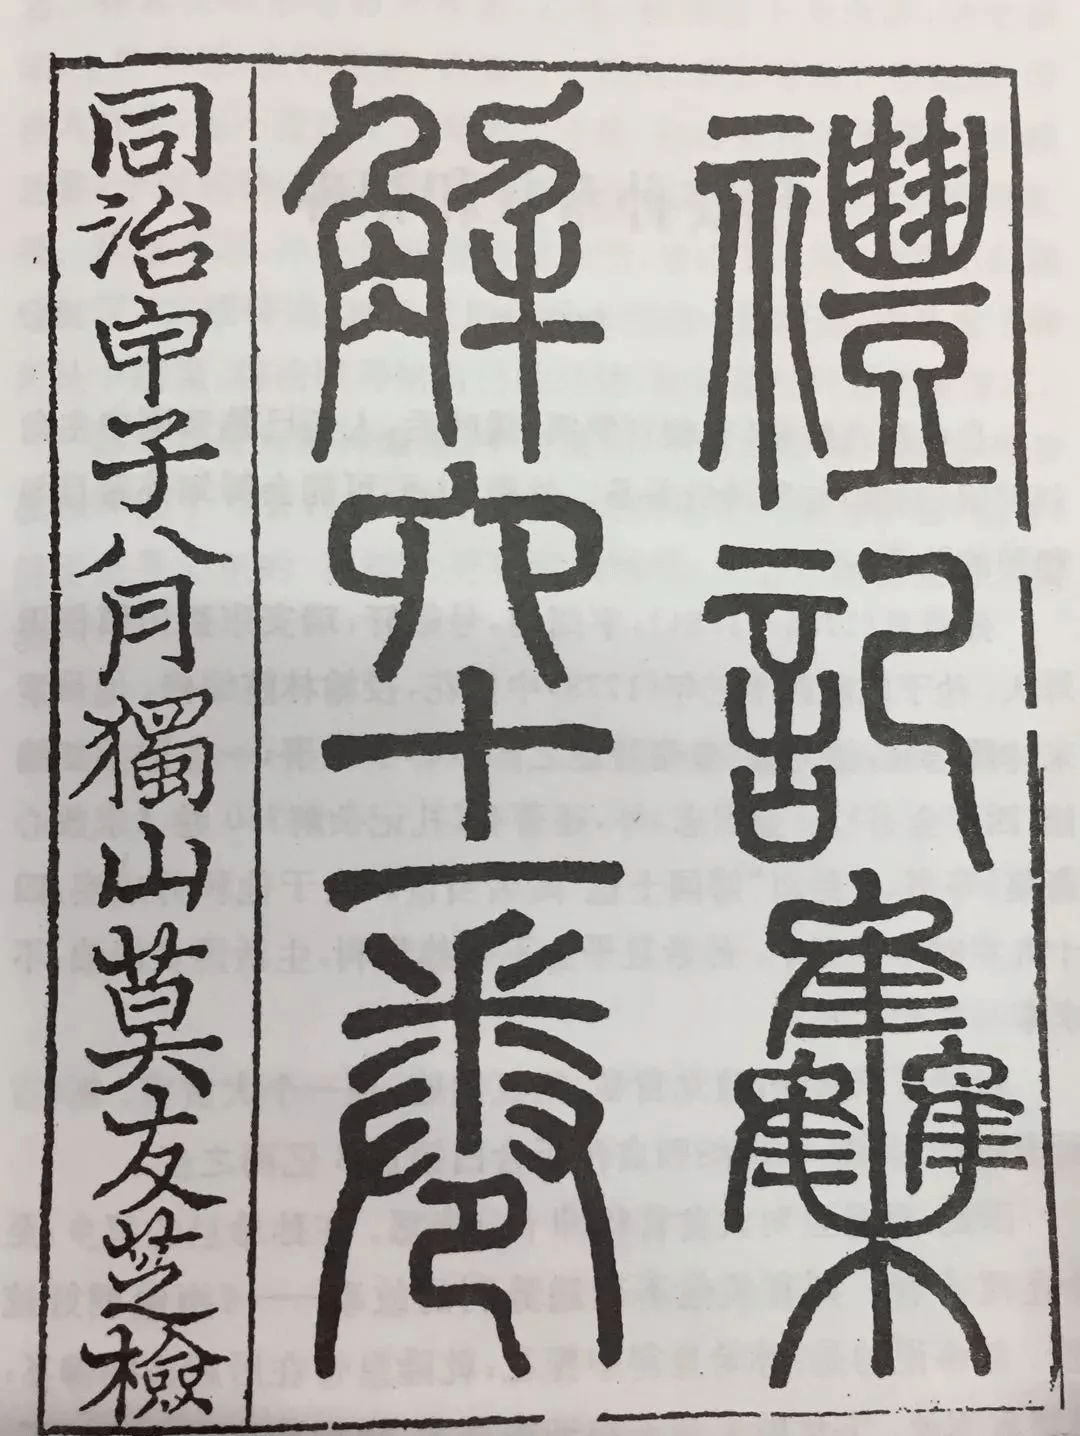 禮記雧
解六十一卷
同治甲子八月獨山莫友芝檢